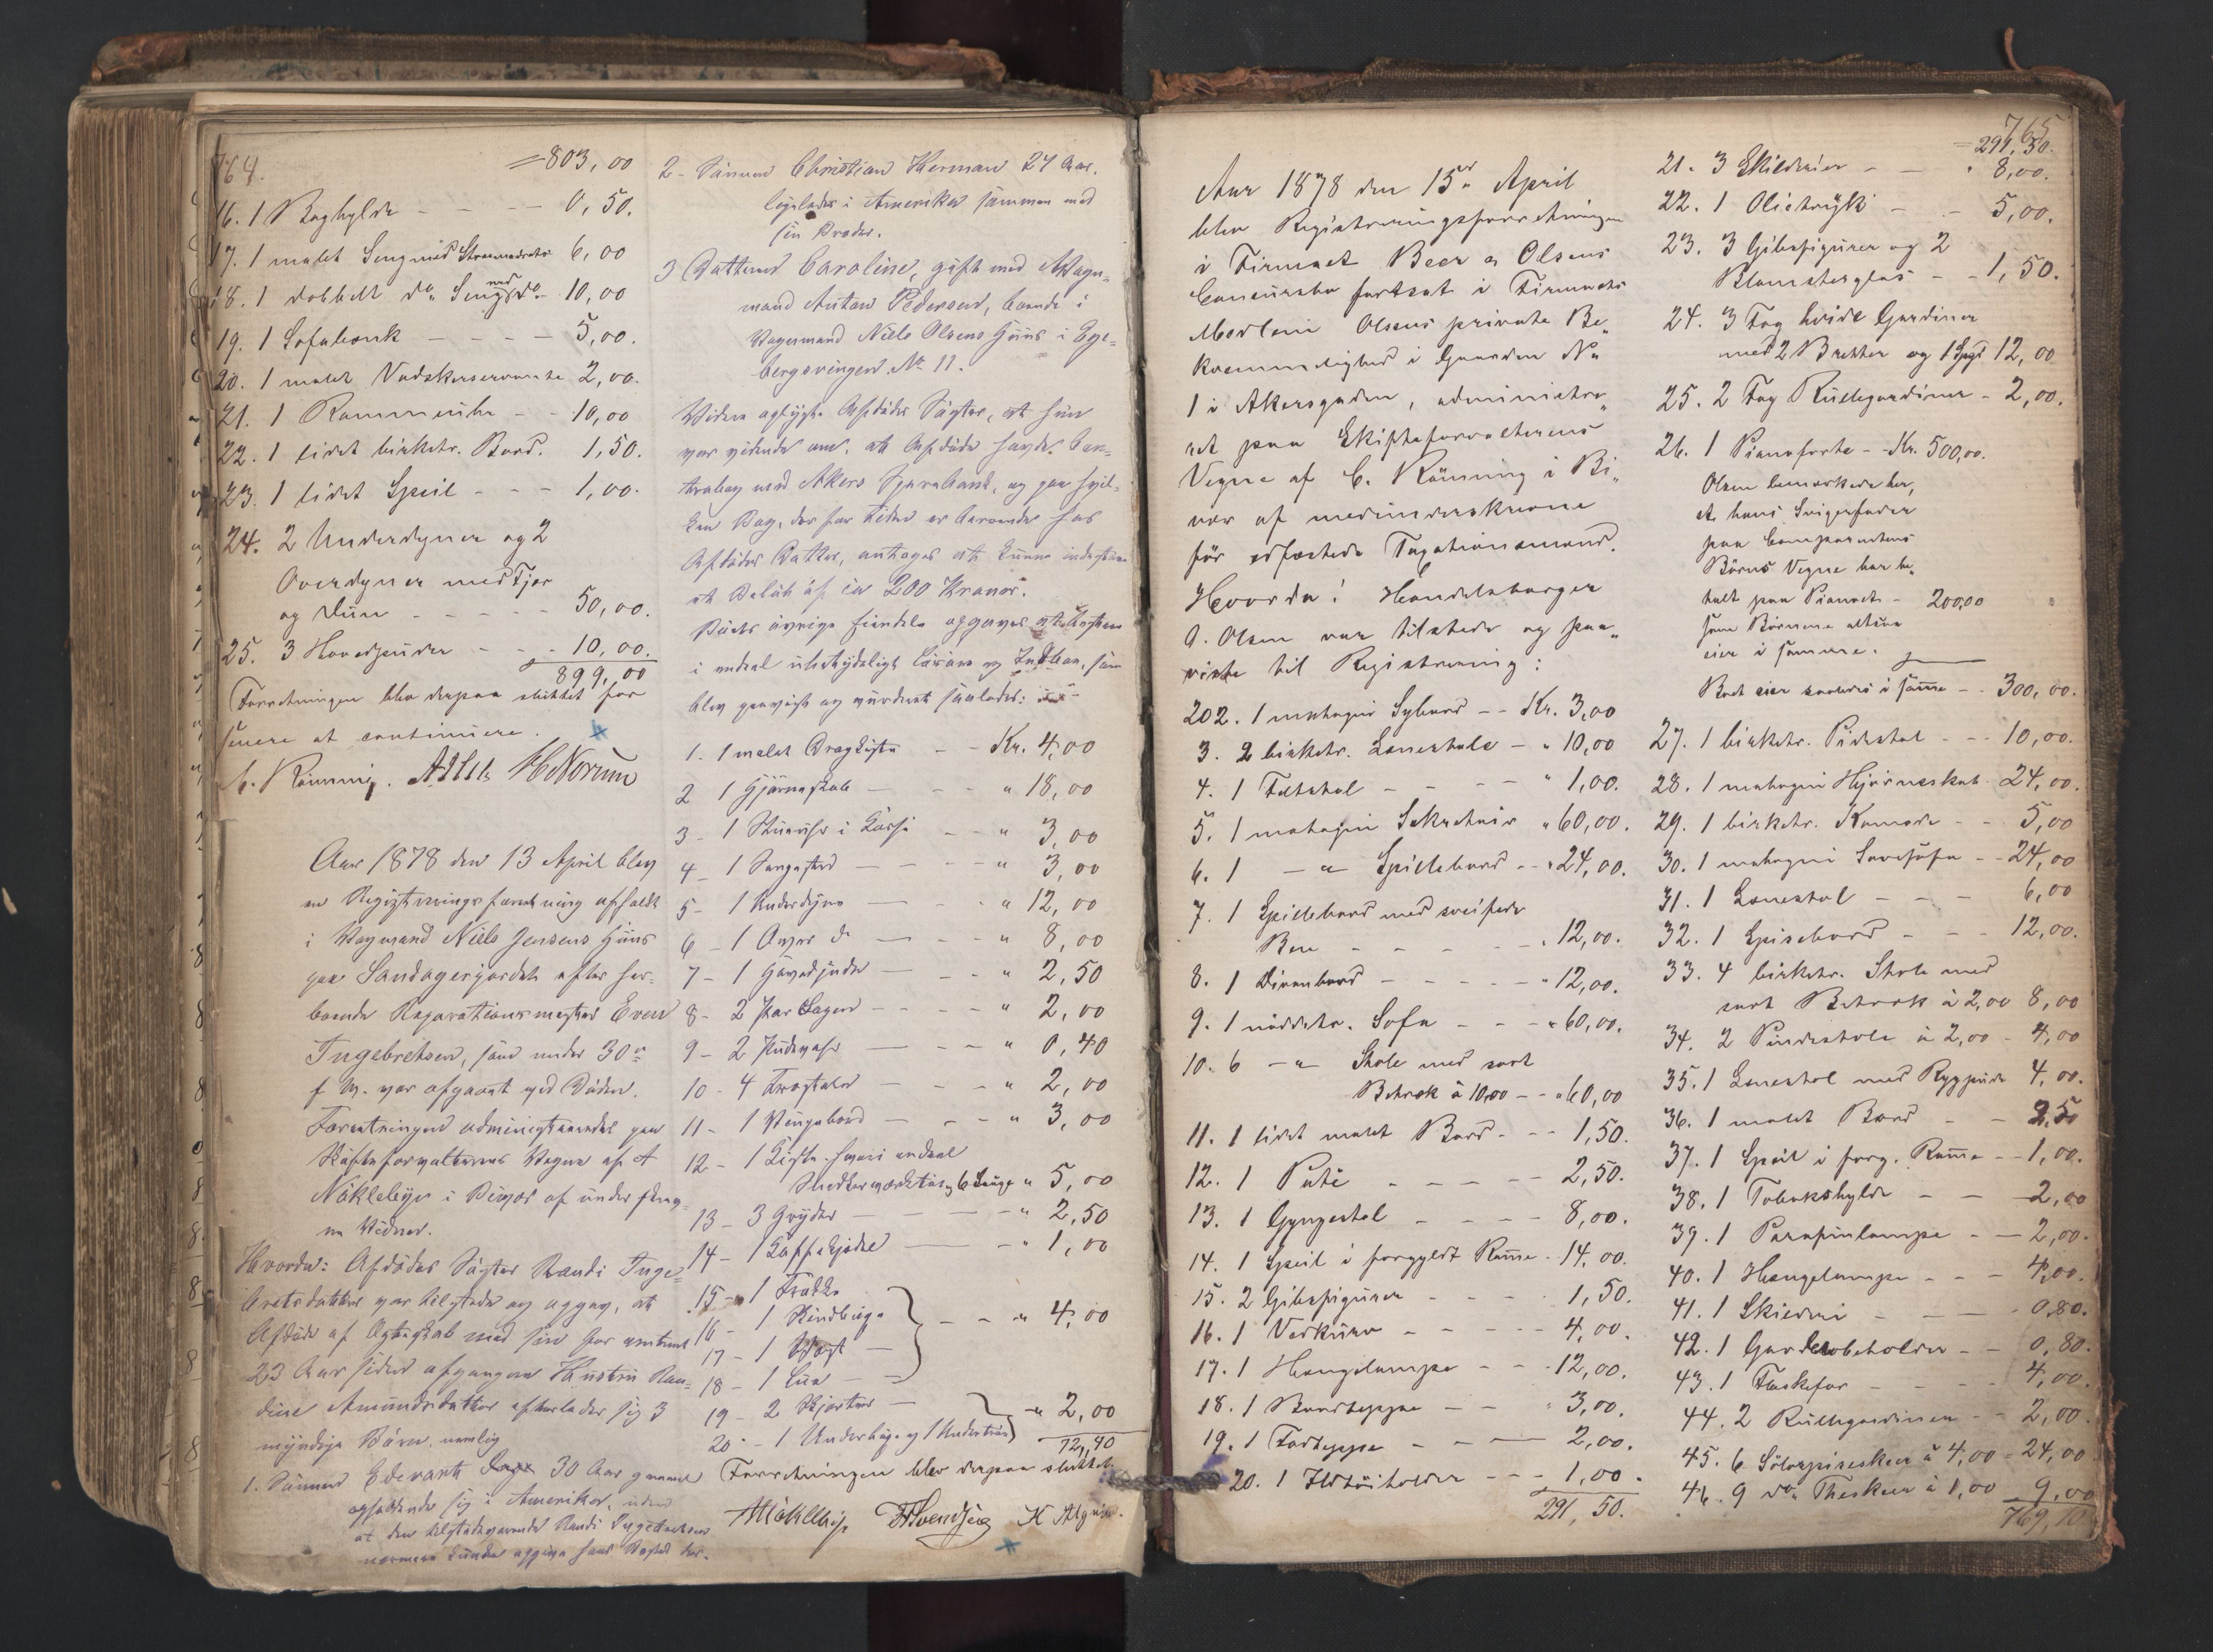 764.
= 803,00
16. 1 Boghylde - - - 0,50.
17. 1 malet Seng med Straamadrats 6,00
18. 1 dobbelt do Seng med do 10,00
19. 1 Sofabænk - - - 5,00.
20. 1 malet Vadskeservante 2,00.
21. 1 Rammeuhr - - 10,00
22. 1 lidet birketr. Bord. 1,50.
23. 1 lidet Speil - - - 1,00.
24. 2 Underdyner og 2
Overdyner med Fjær
og Duun - - - - 50,00.
25. 3 Hovedpuder - - - 10,00.
899,00
Forretningen blev derpaa sluttet for
senere at continuere.
C. Rönning. HNorum
Aar 1878 den 13 April blev
en Registreringsforretning afholdt
i Vognmand Niels Jensens Huus
paa Sandagerjordet efter her-
boende Reparationsmester Even
Ingebretsen, som under 30te
f. M. var afgaaet ved Döden.
Forretningen administreredes paa
Skifteforvalterens Vegne af A
Nökleby i Bivær af underskrev-
ne Vidner.
Hvorda: Afdödes Söster Randi Inge-
bretsdatter var tilstede og opgav, at
Afdöde af Ægteskab med sin for omtrent
23 Aar siden afgangne Hustru Ran-
dine Amundsdatter efterlader sig 3
myndige Börn, nemlig
1. Sönnen Edevart 30 Aar gammel
opholdende sig i Amerika, uden
at den tilstedeværende Randi Ingebretsen
nærmere kunde opgive hans Bosted der.
2- Sönnen Christian Herman 27 Aar.
ligeledes i Amerika sammen med
sin Broder.
3 Datteren Caroline, gift med Vogn-
mand Anton Pedersen, boende i
Vognmand Niels Olsens Huus i Ege-
bergsvingen No 11.
Videre oplyste Afdödes Söster, at hun
var vidende om, at Afdöde havde Con-
trabog med Akers Sparebank, og paa hvil-
ken Bog, der for Tiden er beroende hos
Afdödes Datter, antages at kunne indestaae
et Belöb af ca 200 Kroner.
Boets övrige Eiendele opgaves at bestaae
i endeel ubetydeligt Lösöre og Indbo, som
blev paavist og vurderet saaledes:
1. 1 malet Dragkiste - - Kr. 4,00
2 1 Hjörneskab - - - " 18,00
3- 1 Stueuhr i Kasse - - " 3,00
4- 1 Sengested - - - " 3,00
5- 1 Underdyne - - - " 12,00
6- 1 Over do - - - " 8,00
7- 1 Hovedpude - - - " 2,50
8- 2 Par Lagen - - - " 2,00
9- 2 Pudevar - - - " 0,40
10- 4 Træstoler - - - " 2,00
11- 1 Slagebord - - - " 3,00
12- 1 Kiste hvori endeel
Snedkerværktøi og 6 Sauge " 5,00
13- 3 Gryder - - - " 2,50
14- 1 Kaffekjedel - - " 1,00
15- 1 Frakke
16- 1 Buxe
17- 1 Vest
18- 1 Lue - - - " 4,00
19- 2 Skjorter
20- 1 Underbuxe og 1 Undertröie " 2,00
72,40
Forretningen blev derpaa sluttet.
ANökleby
765
Aar 1878 den 15de April
blev Registreringsforretningen
i Firmaet Beer & Olsens
Concursbo fortsat i Firmaets
Medlem Olsens private Be-
kvemmelighed i Gaarden No
1 i Akersgaden, administre-
ret paa Skifteforvalterens
Vegne af C. Rönning i Bi-
vær af medunderskrevne
för edfæstede Taxationsmænd.
Hvorda! Handelsborger
A. Olsen var tilstede og paa-
viste til Registrering:
202. 1 mahogni Sybord - - Kr. 3,00
3. 2 birketr. Lænestole - " 10,00
4. 1 Feltstol - - - " 1,00.
5. 1 mahogni Sekretair " 60,00.
6. 1 - " - Spillebord - - " 24,00.
7. 1 Spillebord med sveifede
Ben - - - - " 12,00.
8. 1 Divanbord - - - " 12,00.
9. 1 nöddetr. Sofa - - - " 60,00.
10. 6 - " - Stole med sort
Betræk à 10,00 - - " 60,00
11. 1 lidet malet Bord - - - 1,50.
12. 1 Puté - - - - 2,50.
13. 1 Gyngestol - - - - 8,00.
14. 1 Speil i forgyldt Ramme - 14,00.
15. 2 Gibsfigurer - - - - 1,50.
16. 1 Vedkurv - - - - 4,00.
17. 1 Hængelampe - - - 12,00.
18. 1 Bordteppe - - " 3,00.
19. 1 Fodteppe - - - 2,00.
20. 1 Ildtöiholder - - - 1,00.
291,50.
= 291,50.
21. 3 Skilderier - - " 8,00.
22. 1 Olietryk - - 5,00.
23. 3 Gibsfigurer og 2
Blomsterglas - - 1,50.
24. 3 Fag hvide Gardiner
med 2 Bretter og 1 12,00
25. 2 Fag Rullegardiner - 2,00.
26. 1 Pianoforte - - Kr. 500,00.
Olsen bemærkede her,
at hans Svigerfader
paa Comparentens
Börns Vegne har be-
talt paa Pianoet - 200,00
som Börnene altsaa
eier i samme.
Boet eier saaledes i samme - - 300,00.
27. 1 birketr. Pidestal - - - 10,00.
28. 1 mahogni Hjörneskab 24,00.
29. 1 birketr. Komode - - 5,00
30. 1 mahogni Sovesofa - - 24,00
31. 1 Lænestol - - - 6,00
32. 1 Spisebord - - - 12,00.
33. 4 birketr. Stole med
sort Betræk à 2,00 8,00
34. 2 Pindestole à 2,00 - 4,00
35. 1 Lænestol med Rygpude 4,00.
36. 1 malet Bord - - 2,50
37. 1 Speil i forg. Ramme - - 1,00.
38. 1 Tobakshylde - - 2,00
39. 1 Parafinlampe - - 2,00.
40. 1 Hængelampe - - - 4,00.
41. 1 Skilderi - - - 0,80.
42. 1 Garderobeholder - - 0,80.
43. 1 Flaskefor - - - 4,00.
44. 2 Rullegardiner - - 2,00.
45. 6 Sölvspiseskeer à 4,00 - 24,00
46. 9 do Theskeer à 1,00 9,00
769,10